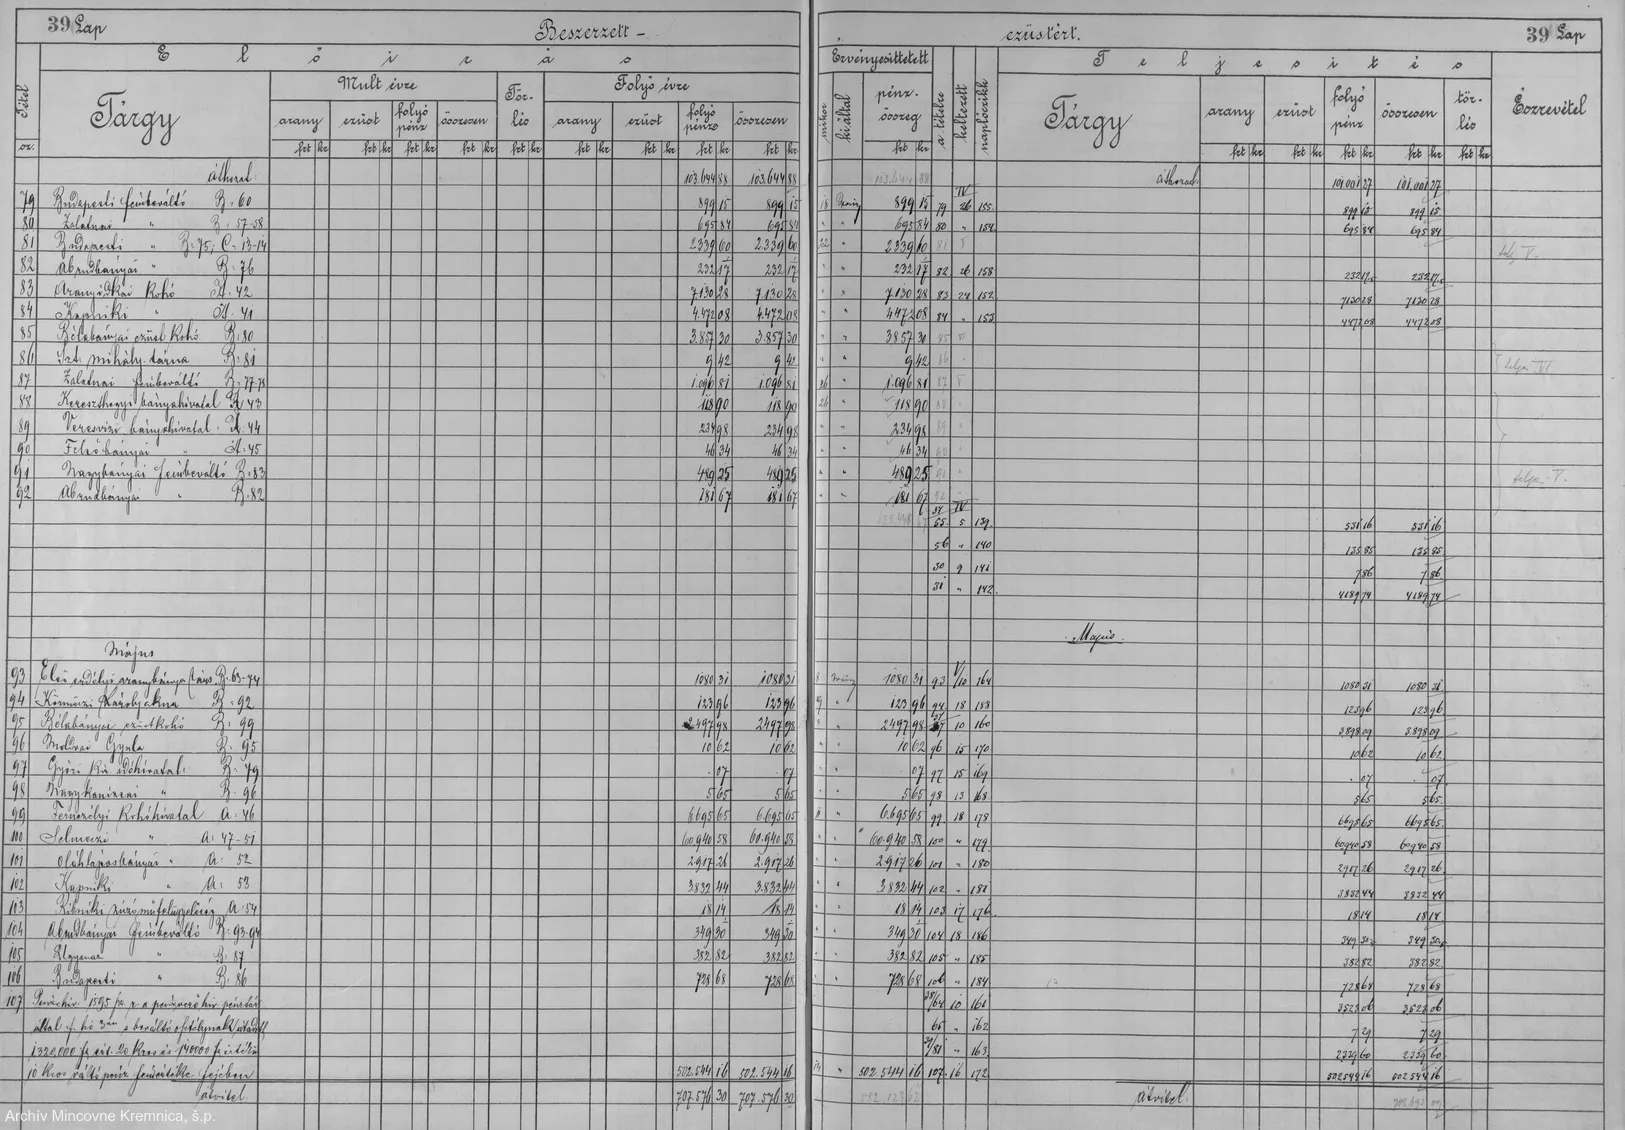 39 Lap Beszerzett -
Előirás
Tétel sz. Tárgy Mult évre Tör-lés Folyó évre
arany ezüst folyó pénz összesen arany ezüst folyó pénz összesen
frt kr frt kr frt kr frt kr frt kr frt kr frt kr frt kr frt kr
áthozat: 103.644 88 103.644 88
79 Budapesti fémbeváltó B: 60 899 15 899 15
80 Zalatnai " B: 57-58 695 84 695 84
81 Budapesti " B: 75; C: 13-14 2339 60 2.339 60
82 Abrudbányai " B: 76 232 17 232 17
83 Aranyidkai Kohó A: 42 7130 28 7130 28
84 Kapniki " A: 41 4.472 08 4.472 08
85 Bélabányai ezüst Kohó B: 80 3.857 30 3.857 30
86 Szt. Mihály-tárna B: 81 9 42 9 42
87 Zalatnai fémbeváltó B: 77-78 1.096 81 1.096 81
88 Kereszthegyi bányahivatal A: 43 118 90 118 90
89 Veresvizi bányahivatal A: 44 234 98 234 98
90 Felsőbányai " A: 45 46 34 46 34
91 Nagybányai fémbeváltó B: 83 489 25 489 25
92 Abrudbányai " B: 82 181 67 181 67
Május
93 Első erdélyi aranybánya társ. B: 63-74 1080 31 1080 31
94 Körmöczi Károlyakna B: 92 123 96 123 96
95 Bélabányai ezüstkohó B: 99 2497 98 2497 98
96 Moldvai Gyula B: 95 10 62 10 62
97 Győri kir. időhivatal: B: 79 . 07 . 07
98 Nagykanizsai " B: 96 5 65 5 65
99 Fernezélyi Kohóhivatal A: 46 6695 65 6.695 65
100 Selmeczi " A: 47-51 60.940 58 60.940 58
101 Oláhláposbányai " A: 52 2917 26 2.917 26
102 Kapniki " A: 53 3832 44 3.832 44
103 Ribniki zúzóműfelügyelőség A: 54 18 14 18 14
104 Abrudbányai fémbeváltó B: 93-94 349 30 349 30
105 Ugyanaz " B: 87 382 82 382 82
106 Budapesti " B: 86 728 68 728 68
107 1595 a pénzverő hiv. pénztár
által f. hó 3án a beváltó osztálynak
1320,000 20 Kros és 140000
10 Kros váltó pénz fejében 502.544 16 502.544 16
átvitel: 707.576 30 707.576 30
ezüstért. 39 Lap
Érvényesittetett Teljesités
mikor ki által pénz-összeg a tételre keltezett naplóczikk Tárgy arany ezüst folyó pénz összesen tör-lés Észrevétel
frt kr frt kr frt kr frt kr frt kr frt kr
103.644 88 áthozat: 101.001 27 101.001 27
18 899 15 79 IV 26 155 899 15 899 15
" " 695 84 80 " 154 695 84 695 84
22 " 2339 60 81 V
" " 232 17 82 26 158 232 17 232 17
" " 7130 28 83 24 152 7130 28 7130 28
" " 4472 08 84 " 153 4472 08 4472 08
" " 3857 30 85 VI
" " 9 42 86 "
26 " 1.096 81 87 V
26 " 118 90 88
" " 234 98 89
" " 46 34 90
" " 489 25 91
" " 181 67 92
55 IV 5 139 531 16 531 16
56 " 140 135 85 135 85
30 9 141 7 86 7 86
31 " 142 4189 74 4189 74
Majus.
8 1080 31 93 V/10 164 1080 31 1080 31
9 " 123 96 94 18 183 123 96 123 96
" " 2497 98 10 160 3898 09 3898 09
" " 10 62 96 15 170 10 62 10 62
" " 07 97 15 169 . 07 . 07
" " 5 65 98 13 168 5 65 5 65
" 6.695 65 99 18 178 6695 65 6695 65
" " 60.940 58 100 " 179 60940 58 60940 58
" " 2917 26 101 " 180 2917 26 2917 26
" " 3.832 44 102 " 181 3832 44 3832 44
" " 18 14 103 17 176 18 14 18 14
" " 349 30 104 18 186 349 30 349 30
" " 382 82 105 " 185 382 82 382 82
" " 728 68 106 " 184 728 68 728 68
10 161 3523 06 3523 06
65 " 162 7 29 7 29
" 163 2339 60 2339 60
14 " 502.544 16 107 16 172 502544 16 502544 16
átvitel:
Archív Mincovne Kremnica, š.p.